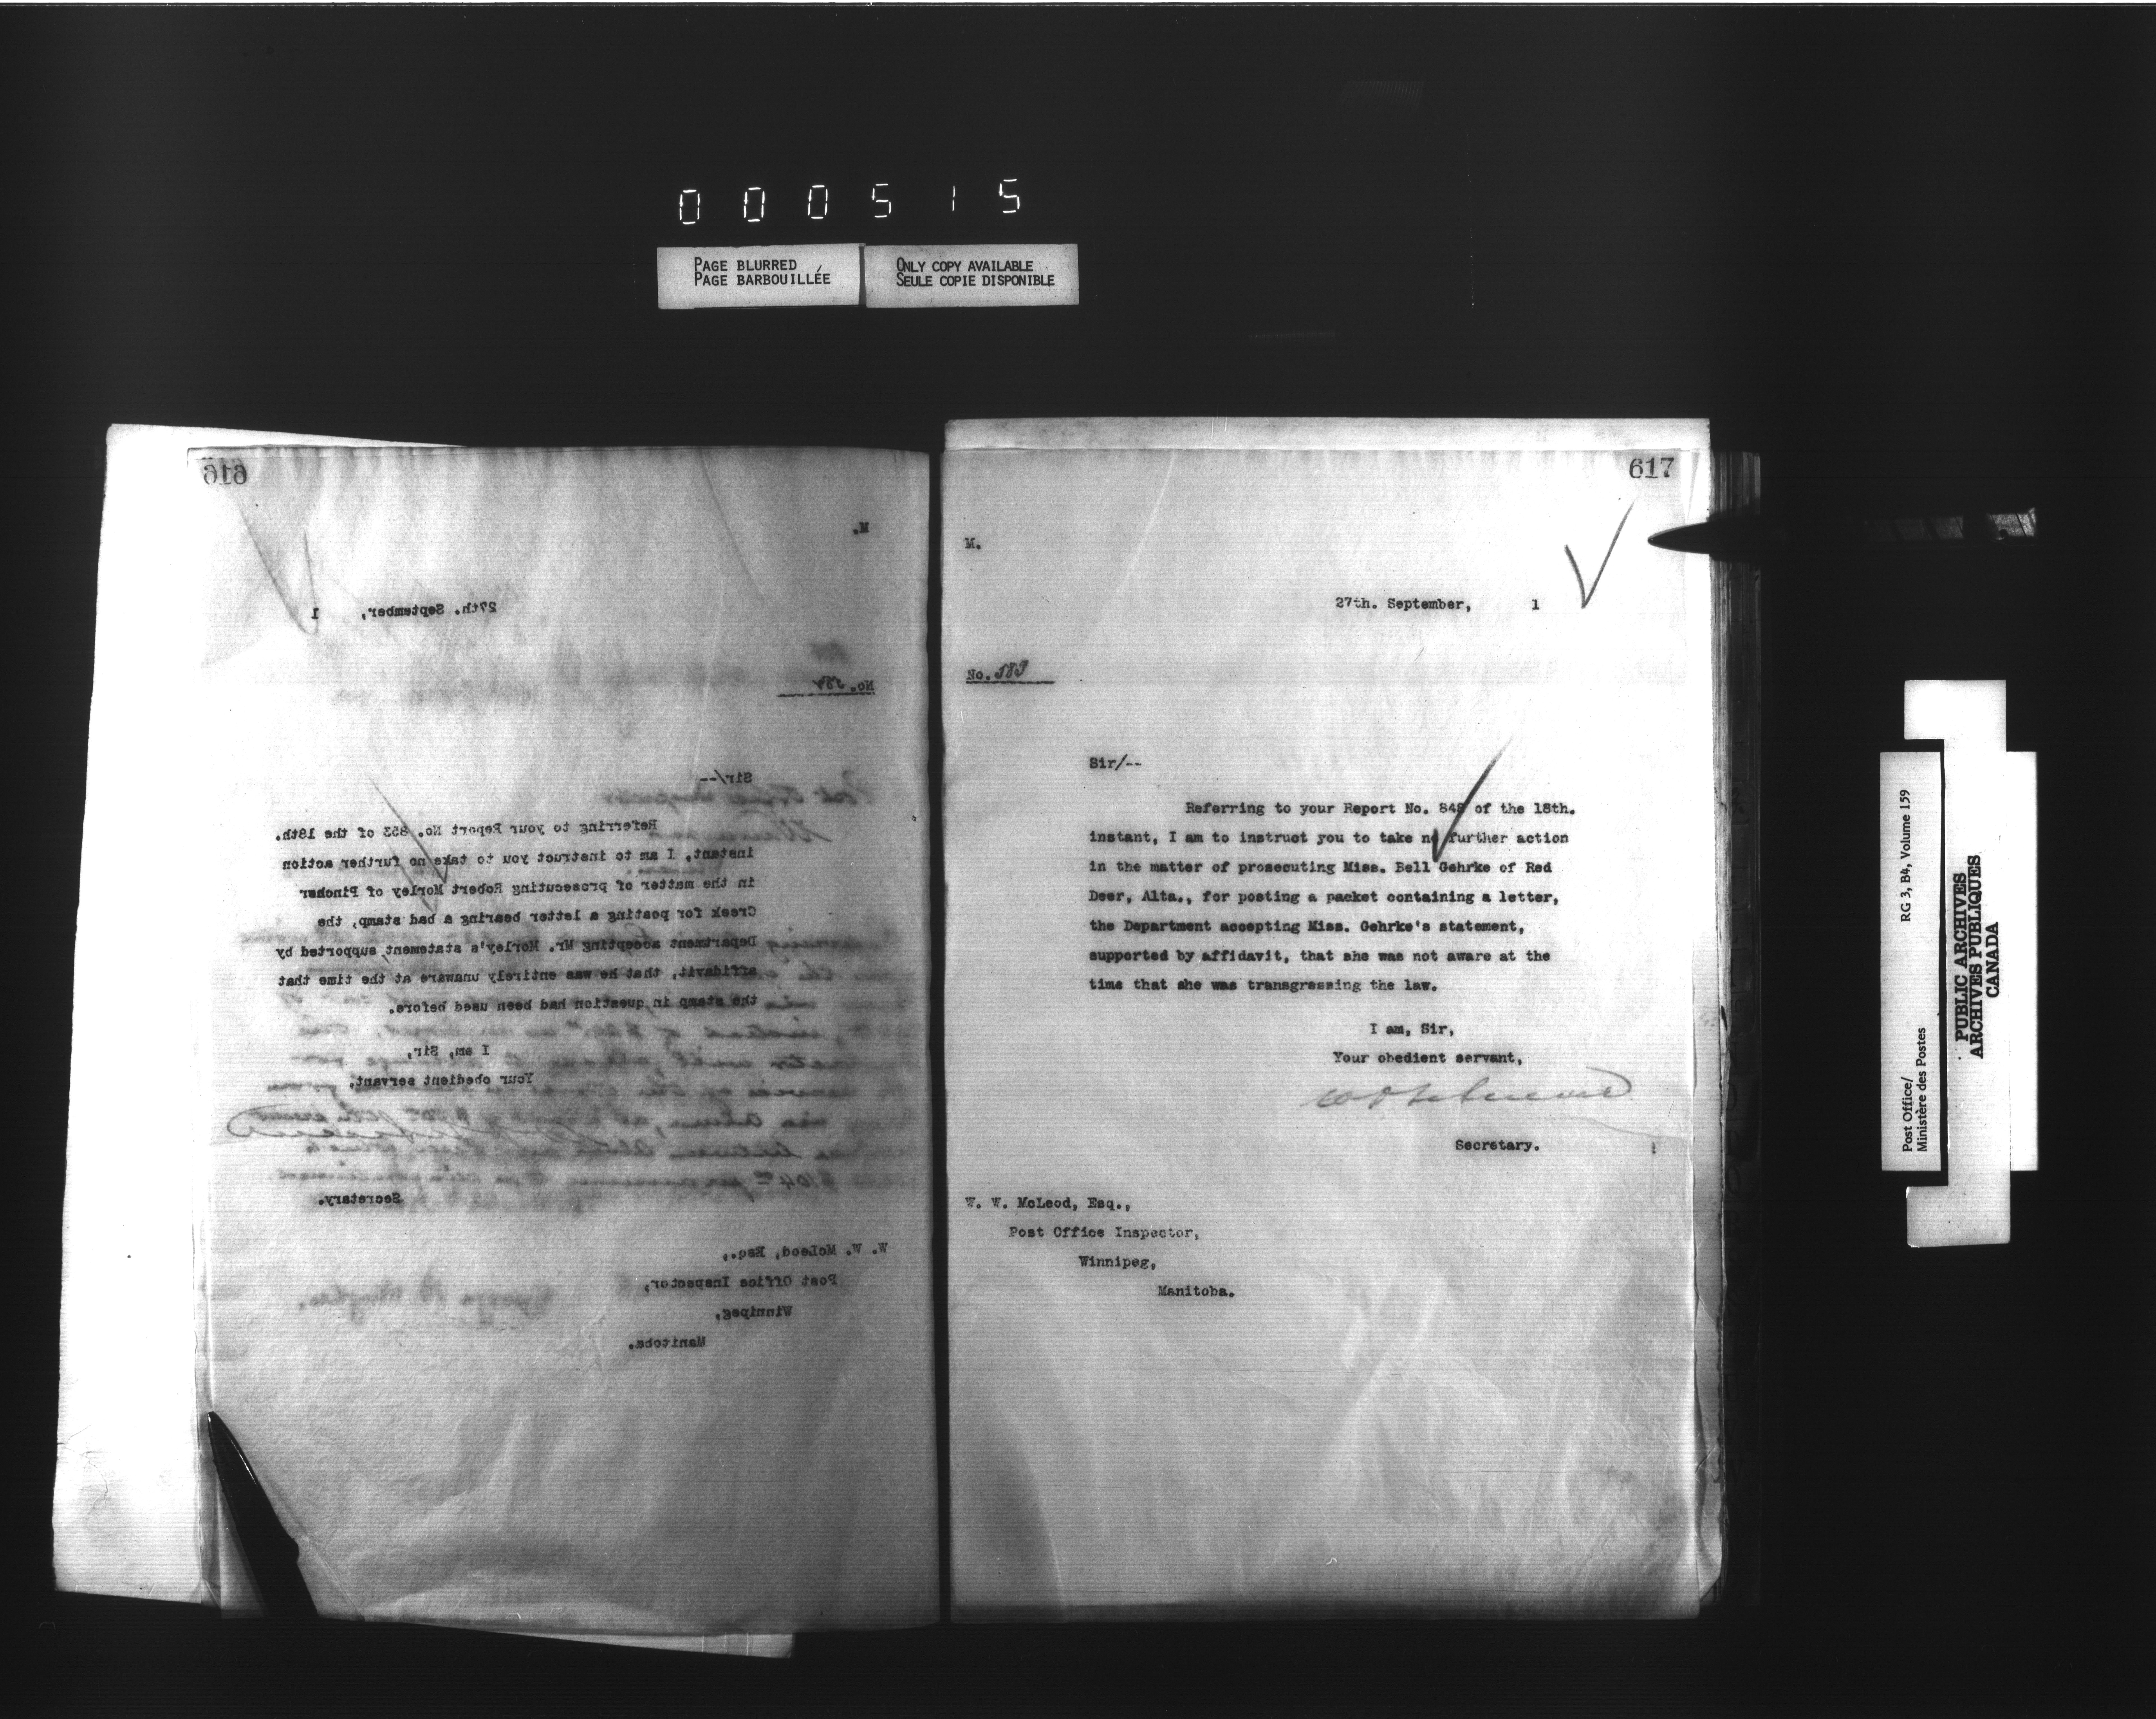 000515
PAGE BLURRED
PAGE BARBOUILLÉE
ONLY COPY AVAILABLE
SEULE COPIE DISPONIBLE
616
M.
27th. September, 1
No.
Sir/--
Referring to your Report No. 853 of the 18th.
instant, I am to instruct you to take no further action
in the matter of prosecuting Robert Morley of Pincher
Creek for posting a letter bearing a bad stamp, the
Department accepting Mr. Morley's statement supported by
affidavit, that he was entirely unaware at the time that
the stamp in question had been used before.
I am, Sir,
Your obedient servant,
Secretary.
W. W. McLeod, Esq.,
Post Office Inspector,
Winnipeg,
Manitoba.
617
M.
27th. September, 1
No. 583
Sir/--
Referring to your Report No. 848 of the 18th.
instant, I am to instruct you to take no further action
in the matter of prosecuting Miss. Bell Gehrke of Red
Deer, Alta., for posting a packet containing a letter,
the Department accepting Miss. Gehrke's statement,
supported by affidavit, that she was not aware at the
time that she was transgressing the law.
I am, Sir,
Your obedient servant,
Secretary.
W. W. McLeod, Esq.,
Post Office Inspector,
Winnipeg,
Manitoba.
Post Office/ RG 3, B4, Volume 159
Ministère des Postes
PUBLIC ARCHIVES
ARCHIVES PUBLIQUES
CANADA